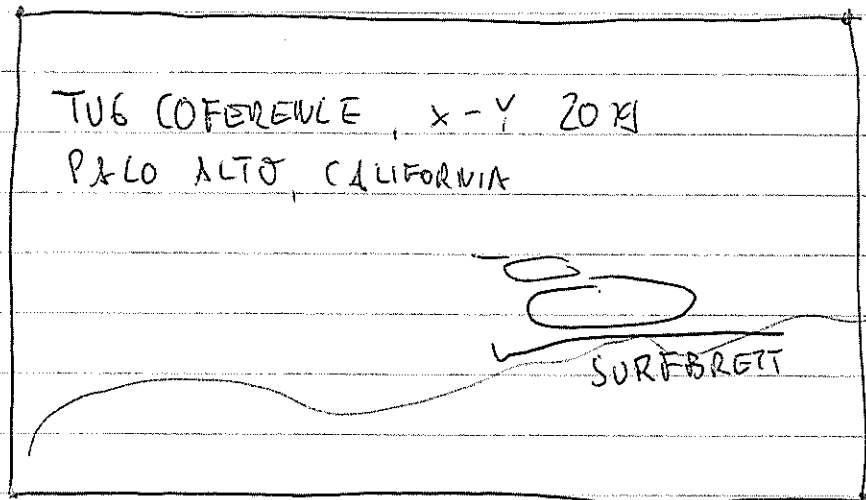 TUG COFERENCE, X-Y 20
PALO ALTO, CALIFORNIA
SURFBRETT